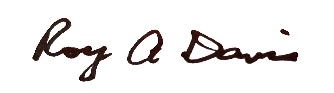 Roy A Davis